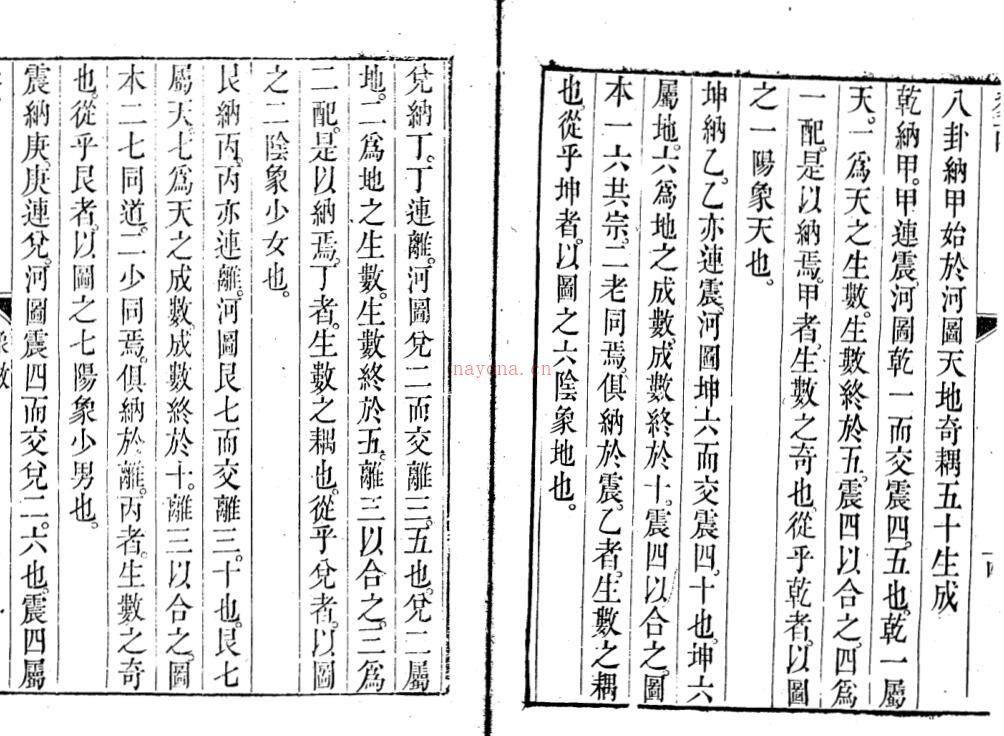 八卦納甲始於河圖天地奇耦五十生成
乾納甲。甲連震。河圖乾一而交震四。五也。乾一屬
天。一爲天之生數。生數終於五。震四以合之。四爲
一配。是以納焉。甲者。生數之奇也。從乎乾者。以圖
之一陽象天也。
坤納乙。乙亦連震。河圖坤六而交震四。十也。坤六
屬地。六爲地之成數。成數終於十。震四以合之。圖
本一六共宗。二老同焉。俱納於震。乙者。生數之耦
也。從乎坤者。以圖之六陰象地也。
兌納丁。丁連離。河圖兌二而交離三。五也。兌二屬
地。二爲地之生數。生數終於五。離三以合之。三爲
二配。是以納焉。丁者。生數之耦也。從乎兌者。以圖
之二陰象少女也。
艮納丙。丙亦連離。河圖艮七而交離三。十也。艮七
屬天。七爲天之成數。成數終於十。離三以合之。圖
本二七同道。二少同焉。俱納於離。丙者。生數之奇
也。從乎艮者。以圖之七陽象少男也。
震納庚。庚連兌。河圖震四而交兌二。六也。震四屬
nayona.cn